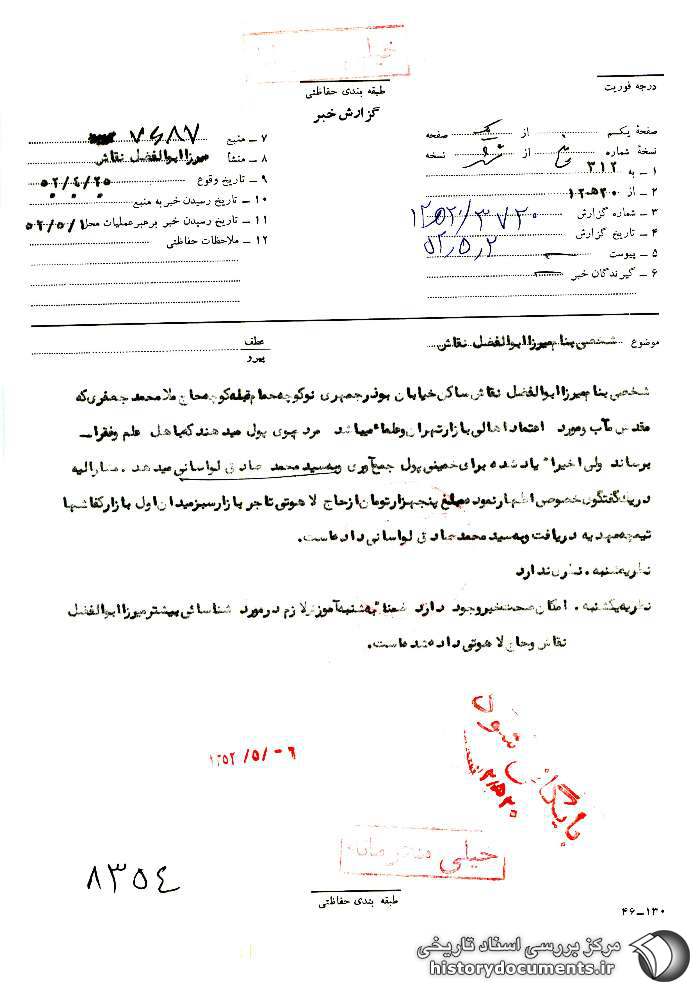 خیلی
طبقه بندی حفاظتی
گزارش خبر
درجه فوریت
صفحهٔ یکم از یک صفحه
نسخهٔ شماره از نسخه
۱ ـ به ۳۱۲
۲ ـ از ۲۰ ه ۱۲
۳ ـ شماره گزارش
۴ ـ تاریخ گزارش ۵۲٫۵٫۲
۵ ـ پیوست
۶ ـ گیرندگان خبر
۷ ـ منبع ۷۶۸۷
۸ ـ منشأ میرزا ابوالفضل نقاش
۹ ـ تاریخ وقوع ۵۲/۴/۲۵
۱۰ ـ تاریخ رسیدن خبر به منبع
۱۱ ـ تاریخ رسیدن خبر برهبر عملیات محل ۵۲/۵/۱
۱۲ ـ ملاحظات حفاظتی
موضوع شخصی بنام میرزا ابوالفضل نقاش
عطف
پیرو
شخصی بنام میرزا ابوالفضل نقاش ساکن خیابان بوذرجمهری نو کوچه حمام قبله کوچه حاج ملامحمد جعفری که
مقدس مآب و مورد اعتماد اهالی بازار تهران و علماء میباشد مردم بوی پول میدهند که باهل علم و فقراء ـ
برساند ولی اخیراً یاد شده برای خمینی پول جمع آوری و به سید محمد صادق لواسانی میدهد . مشارالیه
در یک گفتگوی خصوصی اظهار نمود مبلغ پنجهزار تومان از حاج لاهوتی تاجر بازار سبزمیدان اول بازار کفاشها
تیمچه مهدیه دریافت و به سید محمد صادق لواسانی داده است.
نظریه شنبه . نظری ندارد
نظریه یکشنبه . امکان صحت خبر وجود دارد ضمناً به شنبه آموزش لازم در مورد شناسائی بیشتر میرزا ابوالفضل
نقاش و حاج لاهوتی داده شده است.
بایگانی شود
۱۳۵۲/۵/-۶
خیلی محرمانه
۸۳۵۴
طبقه بندی حفاظتی
۴۶ـ۱۳۰
مرکز بررسی اسناد تاریخی
historydocuments.ir